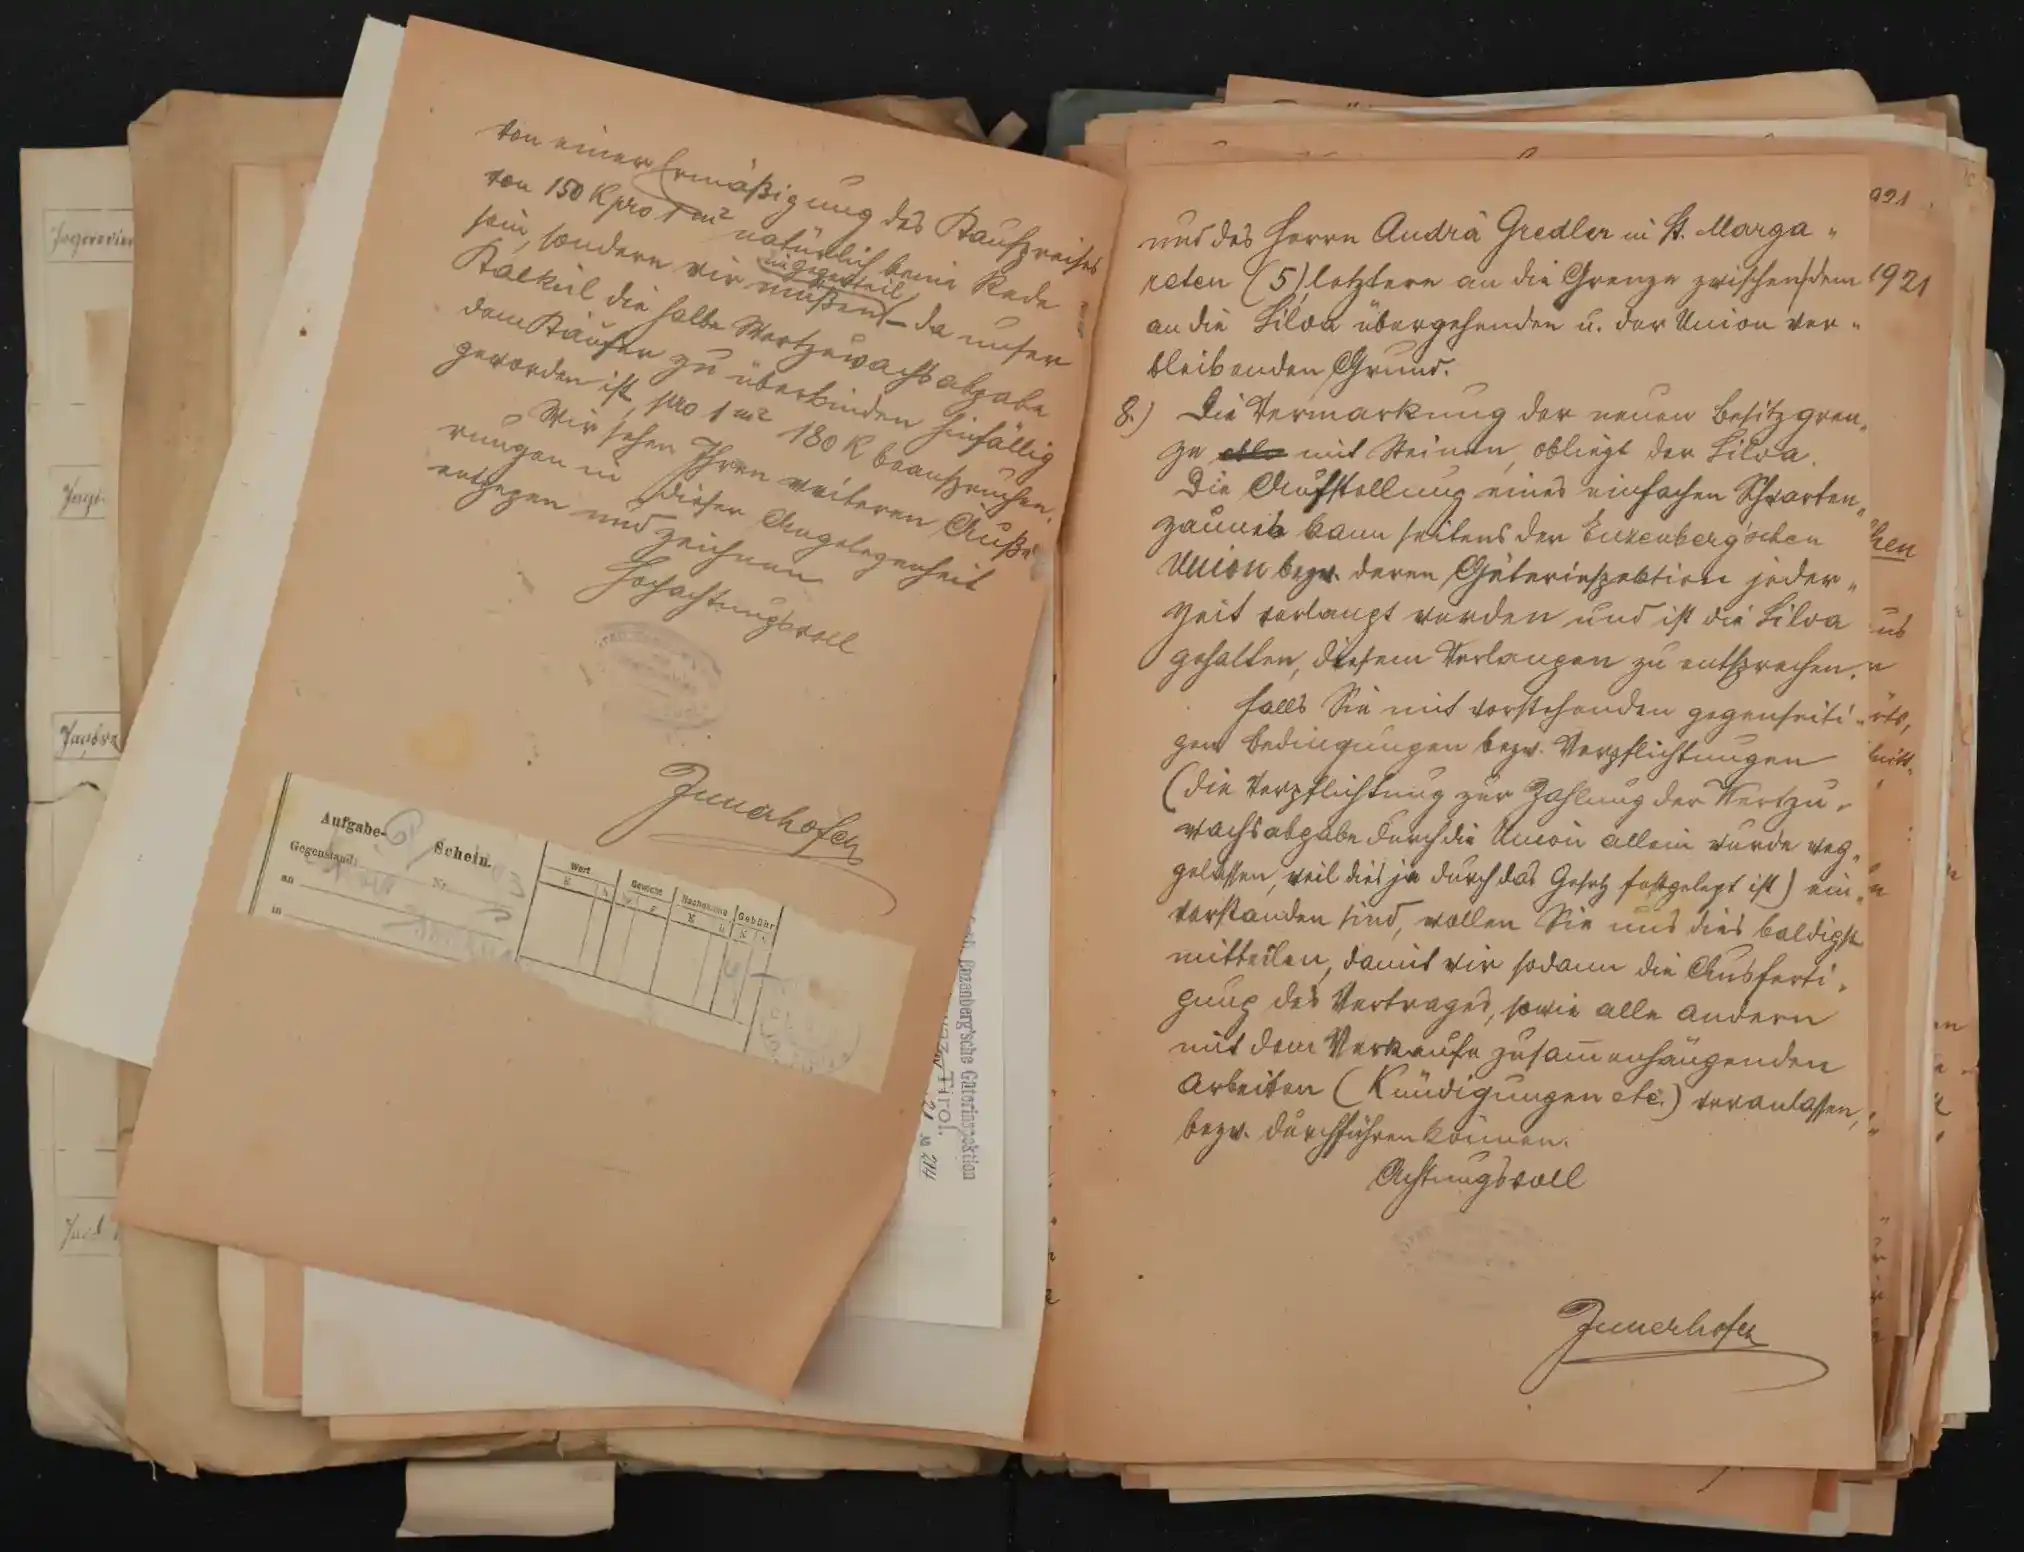 von einer Ermäßigung des Kaufpreises
von 150 K pro 1 m² natürlich keine Rede
sein, sondern wir müßen im gegenteil – da unser
Kalkül die halbe Wertzuwachsabgabe
dem Käufer zu überbinden hinfällig
geworden ist, pro 1 m² 180 K beanspruchen.
Wir sehen Ihren weiteren Äuße
rungen in dieser Angelegenheit
entgegen und zeichnen
Hochachtungsvoll
Innerhofer
Aufgabe-Schein.
Gegenstand: Nr.
an
in
Wert
Gewicht
Nachnahme
Gebühr
K h
K h
Enzenberg'sche Güterinspektion
Tirol.
und des Herrn Andrä Gredler in St. Marga-
reten (5) letztere an die Grenze zwischen dem
an die Silva übergehenden u. der Union ver-
bleibenden Grund.
8.) Die Vermarkung der neuen Besitzgren-
ze mit Steinen, obliegt der Silva.
Die Aufstellung eines einfachen Schwarten-
zaunes kann seitens der Enzenberg'schen
Union bezw. deren Güterinspektion jeder-
zeit verlangt werden und ist die Silva
gehalten, diesem Verlangen zu entsprechen.
Falls Sie mit vorstehenden gegenseiti-
gen Bedingungen bezw. Verpflichtungen
(die Verpflichtung zur Zahlung der Wertzu-
wachsabgabe durch die Union allein wurde weg-
gelassen, weil dies ja durch das Gesetz festgelegt ist) ein-
verstanden sind, wollen Sie uns dies baldigst
mitteilen, damit wir sodann die Ausferti-
gung des Vertrages, sowie alle andern
mit dem Verkaufe zusam̅enhängenden
Arbeiten (Kündigungen etc.) veranlassen,
bezw. durchführen können.
Achtungsvoll
Innerhofer
921
1921